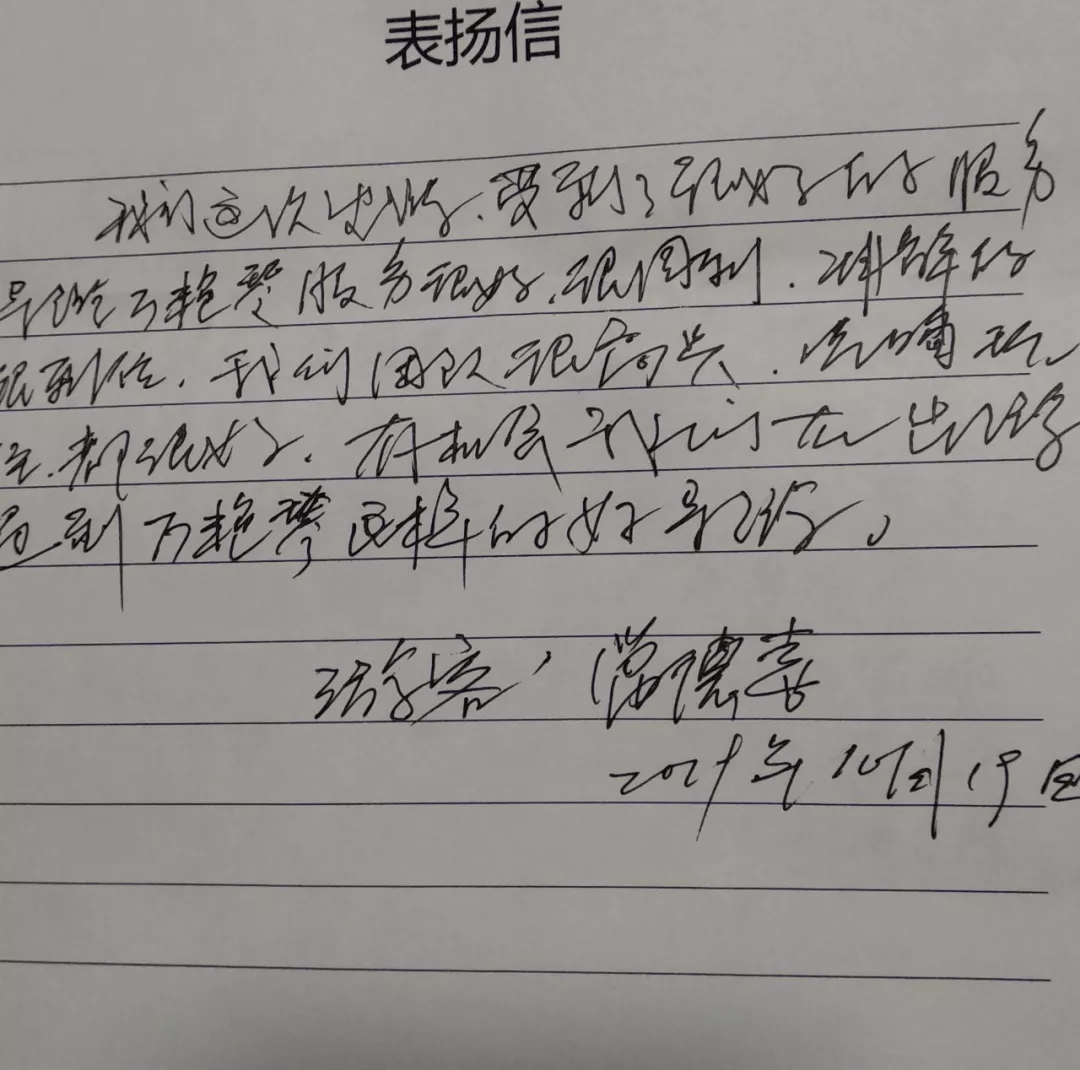 表扬信
我们这次出游、受到了很好的服务
导游万艳琴服务很好、很周到、讲解的
很到位、我们团队很高兴、吃喝玩
都很好、有机会我们在出游
遇到万艳琴这样的好导游、
游客、德喜
年10月19日